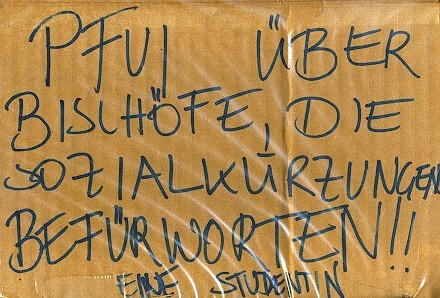 PFUI ÜBER
BISCHÖFE, DIE
SOZIALKÜRZUNGEN
BEFÜRWORTEN!!
EINE STUDENTIN